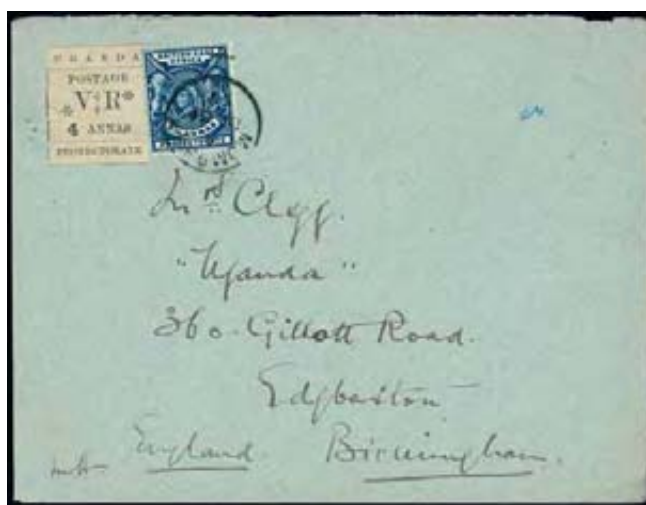 UGANDA
POSTAGE
V R
4 ANNAS
PROTECTORATE
BRITISH EAST
AFRICA
Mrs Clegg.
"Uganda"
360 Gillott Road.
Edgbaston
England Birmingham.